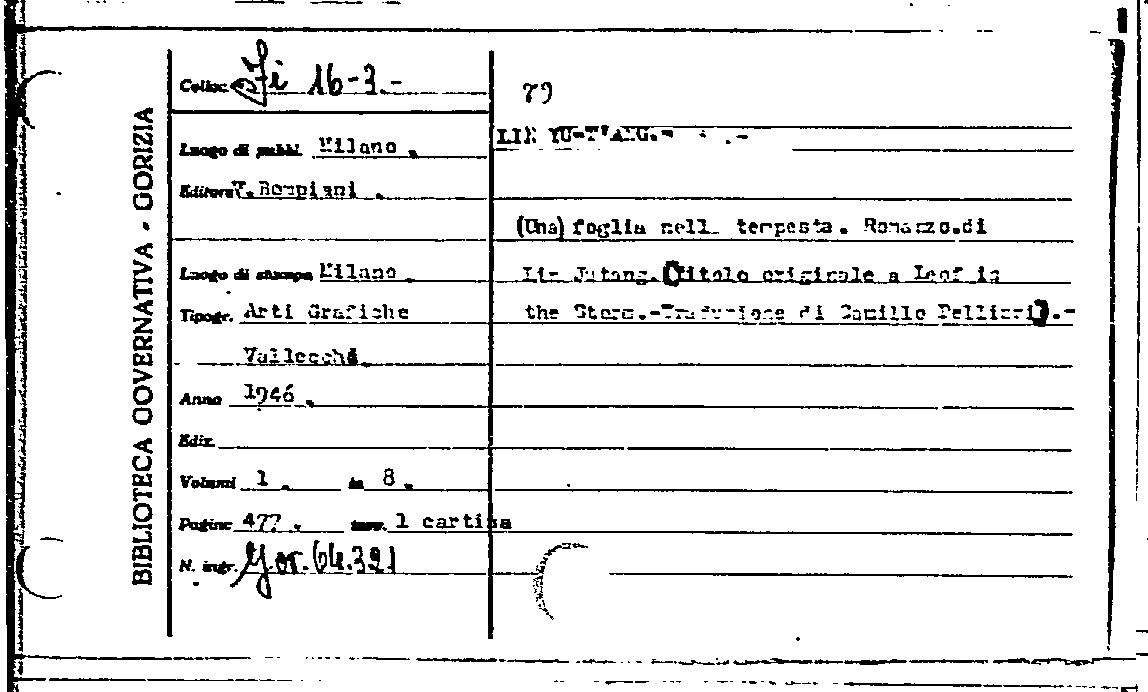 BIBLIOTECA GOVERNATIVA - GORIZIA
Colloc. Fi 16-3.-
79
LIN YU-T'ANG.-
Luogo di pubbl. Milano.
Editore V. Bompiani.
(Una) foglia nella tempesta. Romanzo di
Luogo di stampa Milano.
Lin Jutang. (Titolo originale a Leaf in
Tipogr. Arti Grafiche
the Storm.-Traduzione di Camillo Pellizzi).-
Vallecchi
Anno 1946.
Ediz.
Volumi 1. in 8.
Pagine 477. tav. 1 cartina
N. ingr. Gor. 64.391